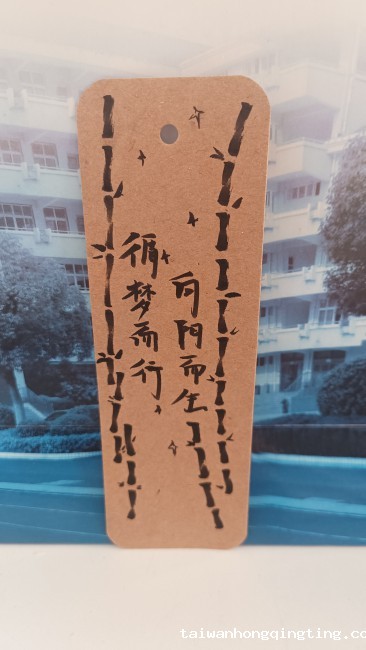 循梦而行，
向阳而生
taiwanhongqingting.co